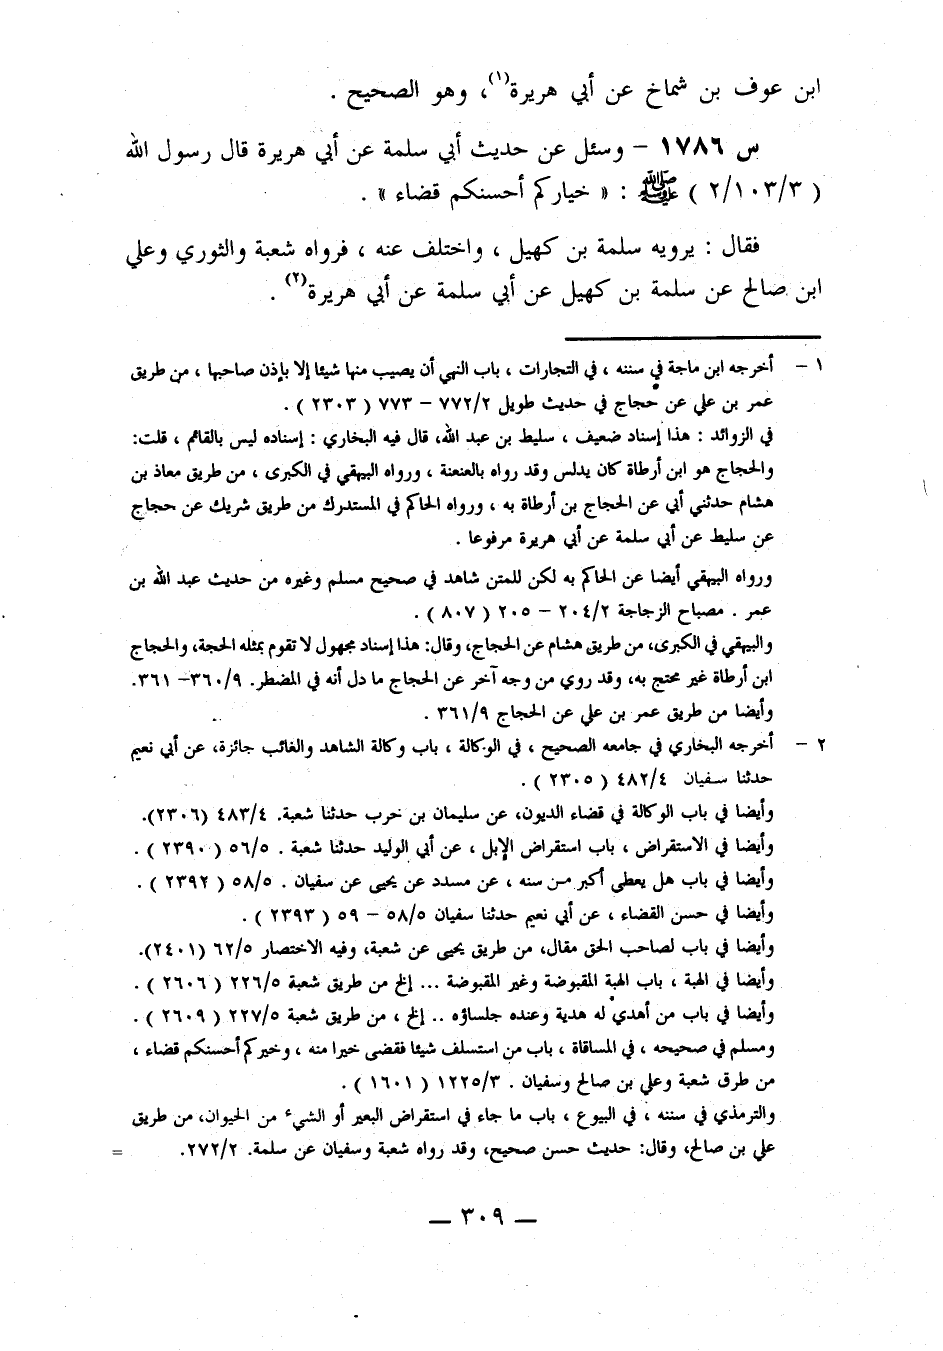 ابن عوف بن شماخ عن أبي هريرة(١)، وهو الصحيح .
س ١٧٨٦ – وسئل عن حديث أبي سلمة عن أبي هريرة قال رسول الله
( ٢/١٠٣/٣ ) ﷺ : « خياركم أحسنكم قضاء » .
فقال : يرويه سلمة بن كهيل ، واختلف عنه ، فرواه شعبة والثوري وعلي
ابن صالح عن سلمة بن كهيل عن أبي سلمة عن أبي هريرة(٢) .
١ – أخرجه ابن ماجة في سننه ، في التجارات ، باب النهي أن يصيب منها شيئا إلا بإذن صاحبها ، من طريق
عمر بن علي عن حجاج في حديث طويل ٧٧٢/٢ – ٧٧٣ ( ٢٣٠٣ ) .
في الزوائد : هذا إسناد ضعيف ، سليط بن عبد الله، قال فيه البخاري : إسناده ليس بالقائم ، قلت:
والحجاج هو ابن أرطاة كان يدلس وقد رواه بالعنعنة ، ورواه البيهقي في الكبرى ، من طريق معاذ بن
هشام حدثني أبي عن الحجاج بن أرطاة به ، ورواه الحاكم في المستدرك من طريق شريك عن حجاج
عن سليط عن أبي سلمة عن أبي هريرة مرفوعا .
ورواه البيهقي أيضا عن الحاكم به لكن للمتن شاهد في صحيح مسلم وغيره من حديث عبد الله بن
عمر . مصباح الزجاجة ٢٠٤/٢ – ٢٠٥ ( ٨٠٧ ) .
والبيهقي في الكبرى، من طريق هشام عن الحجاج، وقال: هذا إسناد مجهول لا تقوم بمثله الحجة، والحجاج
ابن أرطاة غير محتج به، وقد روي من وجه آخر عن الحجاج ما دل أنه في المضطر. ٣٦٠/٩– ٣٦١.
وأيضا من طريق عمر بن علي عن الحجاج ٣٦١/٩ .
٢ – أخرجه البخاري في جامعه الصحيح ، في الوكالة ، باب وكالة الشاهد والغائب جائزة، عن أبي نعيم
حدثنا سفيان ٤٨٢/٤ ( ٢٣٠٥ ) .
وأيضا في باب الوكالة في قضاء الديون، عن سليمان بن خرب حدثنا شعبة. ٤٨٣/٤ (٢٣٠٦).
وأيضا في الاستقراض ، باب استقراض الإبل ، عن أبي الوليد حدثنا شعبة . ٥٦/٥ ( ٢٣٩٠ ) .
وأيضا في باب هل يعطي أكبر من سنه ، عن مسدد عن يحيى عن سفيان . ٥٨/٥ ( ٢٣٩٢ ) .
وأيضا في حسن القضاء ، عن أبي نعيم حدثنا سفيان ٥٨/٥ – ٥٩ ( ٢٣٩٣ ) .
وأيضا في باب لصاحب الحق مقال، من طريق يحيى عن شعبة، وفيه الاختصار ٦٢/٥ (٢٤٠١).
وأيضا في الهبة ، باب الهبة المقبوضة وغير المقبوضة ... إلخ من طريق شعبة ٢٢٦/٥ ( ٢٦٠٦ ) .
وأيضا في باب من أهدي له هدية وعنده جلساؤه .. إلخ ، من طريق شعبة ٢٢٧/٥ ( ٢٦٠٩ ) .
ومسلم في صحيحه ، في المساقاة ، باب من استسلف شيئا فقضى خيرا منه ، وخيركم أحسنكم قضاء ،
من طرق شعبة وعلي بن صالح وسفيان . ١٢٢٥/٣ ( ١٦٠١ ) .
والترمذي في سننه ، في البيوع ، باب ما جاء في استقراض البعير أو الشيء من الحيوان، من طريق
علي بن صالح، وقال: حديث حسن صحيح، وقد رواه شعبة وسفيان عن سلمة. ٢٧٢/٢. =
— ٣٠٩ —